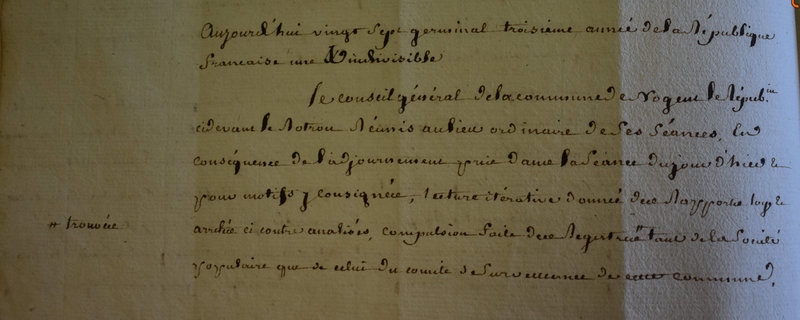 Aujourd'hui vingt sept germinal troisieme année de la République
francaise une & indivisible
Le conseil général de la commune de Nogent le Répub.in
cidevant le Rotrou Réunis au lieu ordinaire de ses séances, En
conséquence de l'adjournement prie dans la séance du jour d'hier &
pour motifs y consignée, lecture itérative donnée des Rapports loix &
# trouvée
arrêtés ci contre analisés, compulsion faite des Registres tant de la société
populaire que de celui du comité de surveillance de cette commune,